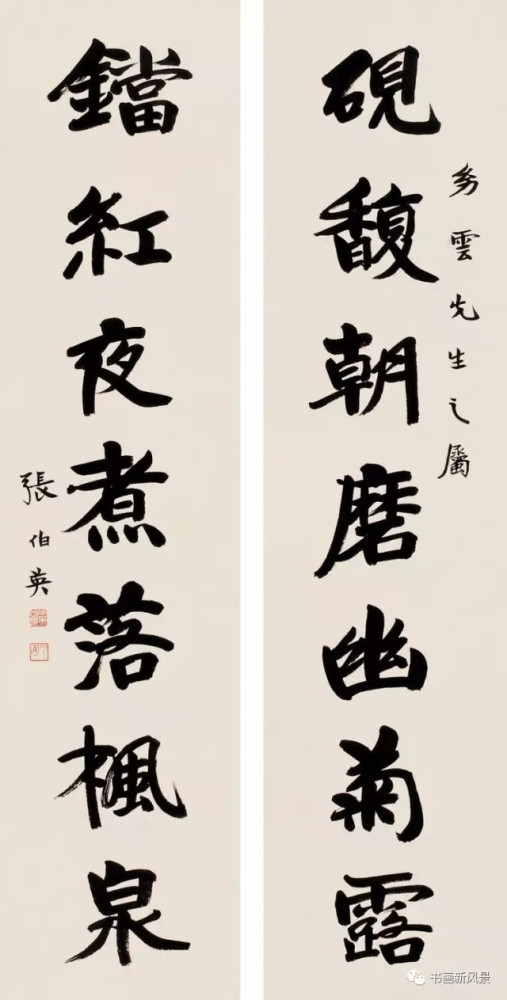 雲先生之屬
硯馥朝磨幽菊露
鐺紅夜煮落楓泉
張伯英
书画新风景